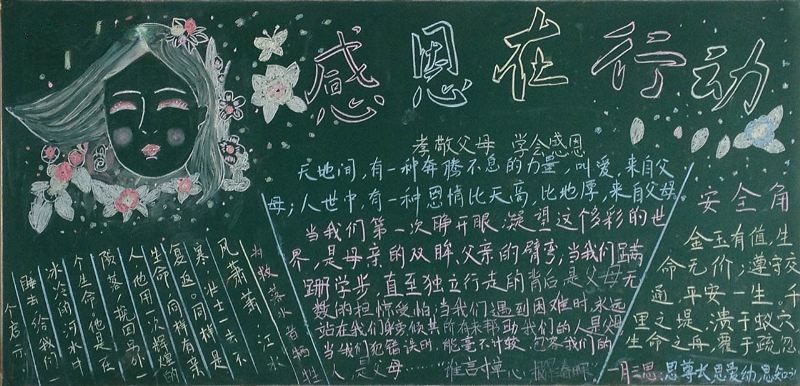 感恩在行动
孝敬父母 学会感恩
天地间，有一种奔腾不息的力量，叫爱，来自父
母；人世中，有一种恩情比天高，比地厚，来自父母。
当我们第一次睁开眼，凝望这个多彩的世
界，是母亲的双眸、父亲的臂弯，当我们蹒
跚学步，直至独立行走的背后是父母无
数的担惊受怕；当我们遇到困难时，永远
站在我们身旁倾其所有来帮助我们的人是父母
当我们犯错误时，能毫不计较，包容我们的
人是父母……谁言寸草心，报得春晖。
安全角
金玉有值，生
命无价；遵守交
通，平安一生。千
里之堤，溃于蚁穴，
生命之舟，覆于疏忽
一月三思：思尊长思爱幼，思知
为救落水者牺牲
风萧萧，江水
寒，壮士一去不
复返。同样是
人，他用一次辉煌的
生命，同样有某
陨落，挽回另外一
个生命。他是在
冰冷的河水中
睡去，给我们一
个启示